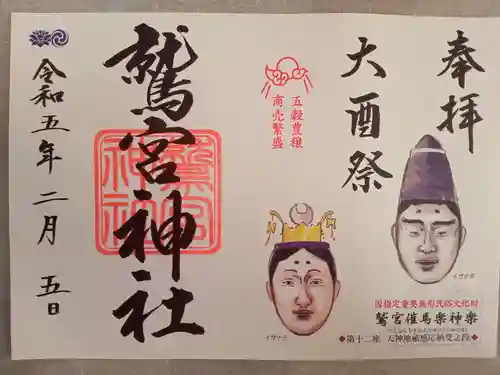 奉拝
大酉祭
五穀豊穣
商売繁盛
鷲宮神社
鷲宮神社
令和五年二月五日
イザナギ
イザナミ
国指定重要無形民俗文化財
鷲宮催馬楽神楽
◆第十二座 天神地祇感応納受之段◆